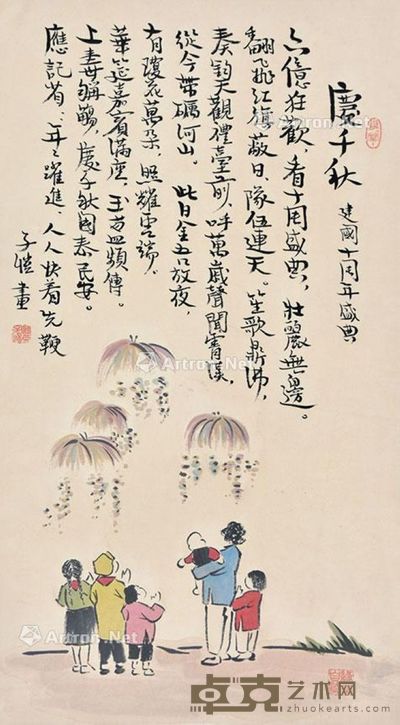 慶千秋
建國十周年盛典
六億狂歡、看十周盛典，壯麗無邊。
翻飛紅旗敝日、隊伍連天。笙歌鼎沸，
奏鈞天觀禮臺前，呼萬歲聲聞霄漢，
從今帶礪河山。 此日金吾放夜，
有瓊花萬朵，照耀雲端。
華筵嘉賓滿座，玉芳頻傳。
上壽稱觴，慶千秋國泰民安。
應記省、年年躍進、人人快著先鞭
子愷畫
Artron.Net
Artron.Net
Artron.Net
Artron.Net
Artron.Net
卓克艺术网
www.zhuokearts.com